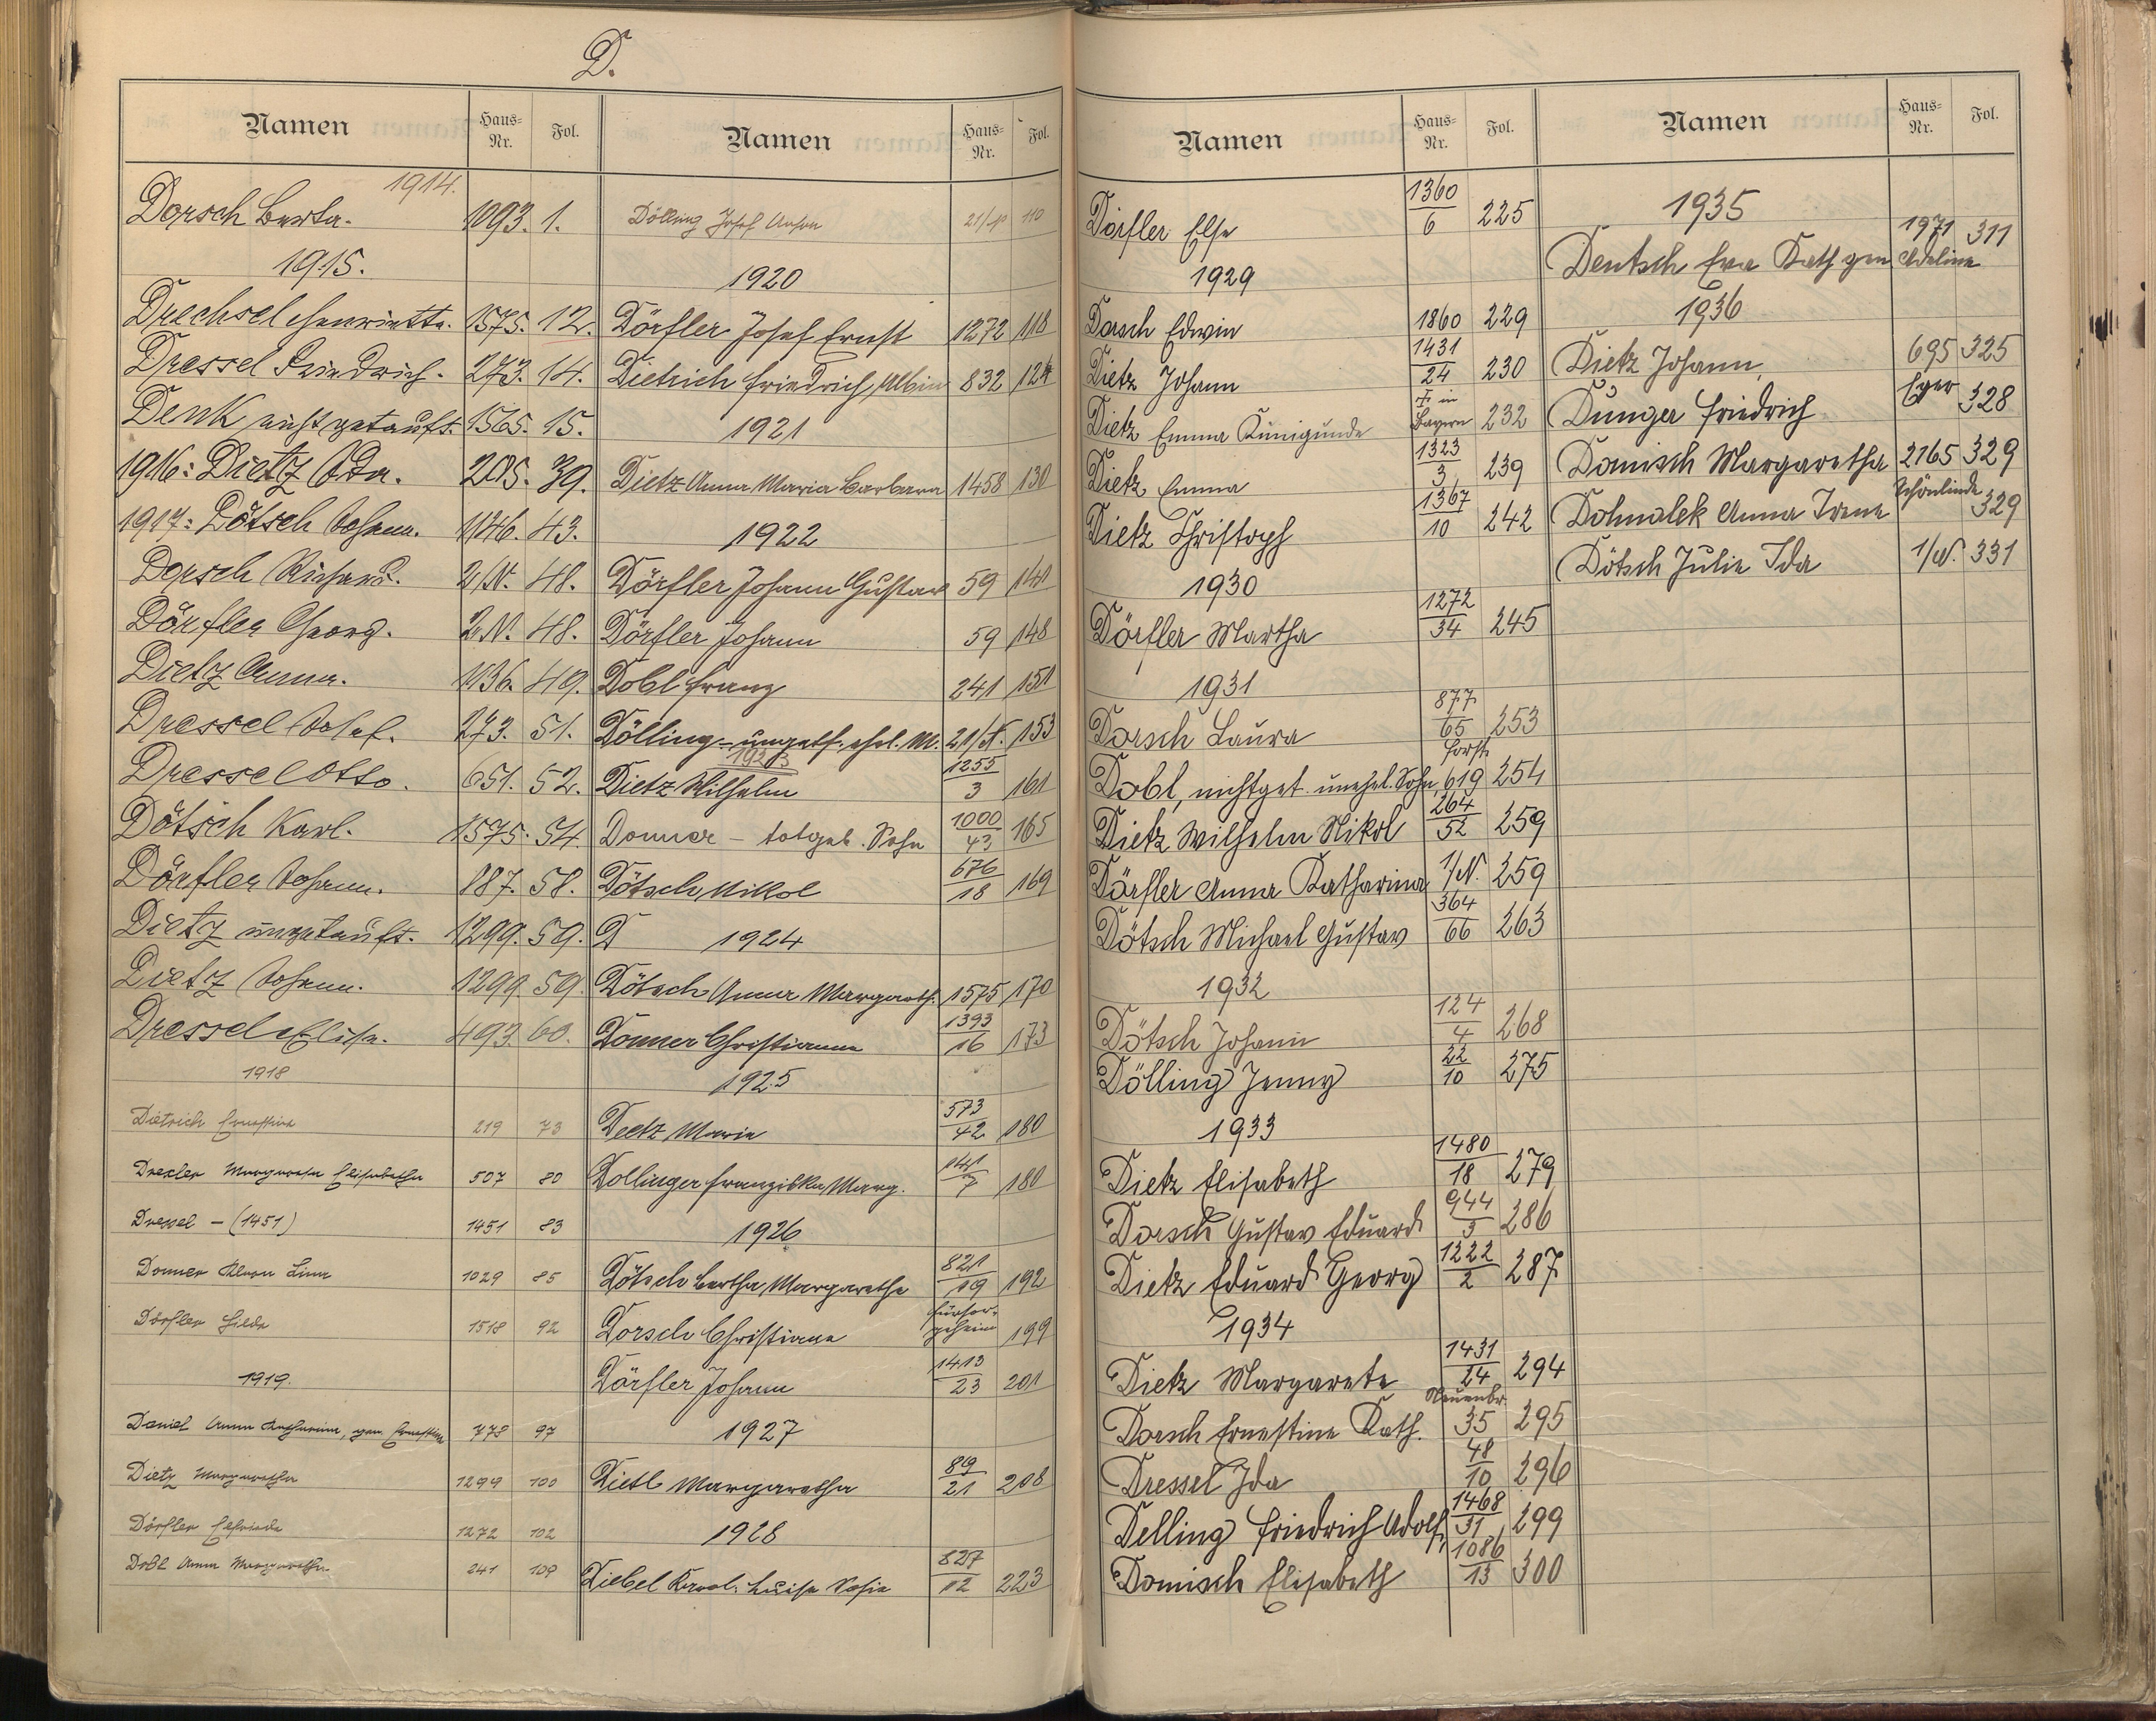 D.
Namen Haus-Nr. Fol.
1914.
Dorsch Berta. 1093. 1.
1915.
Drechsel Henriette. 1575. 12.
Dressel Friedrich. 273. 14.
Denk nicht getauft. 1565. 15.
1916: Dietz Ida. 205. 39.
1917: Dötsch Johann. 1146. 43.
Dorsch Richard. 2/N. 48.
Dörfler Georg. 2/N. 48.
Dietz Anna. 1136. 49.
Dressel Josef. 273. 51.
Dressel Otto. 651. 52.
Dötsch Karl. 1575. 54.
Dörfler Johann. 887. 58.
Dietz ungetauft. 1299. 59.
Dietz Johann. 1299. 59.
Dressel Elise. 493. 60.
1918
Dietrich Ernestine 219 73
Drexler Margareta Elisabetha 507 80
Dressel – (1451) 1451 83
Donner Klara Lina 1029 85
Dörfler Hilda 1518 92
1919.
Daniel Anna Katharina, gen. Ernestine 778 97
Dietz Margaretha 1299 100
Dörfler Elfrieda 1272 102
Dobl Anna Margaretha 241 109
Namen Haus-Nr. Fol.
Dölling Josef Anton 21/N 110
1920
Dörfler Josef Ernst 1272 118
Dietrich Friedrich Albin 832 124
1921
Dietz Anna Maria Barbara 1458 130
1922
Dörfler Johann Gustav 59 141
Dörfler Johann 59 148
Dobl Franz 241 151
Dölling – ungetf. ehel. M. 21/N. 153
1923
Dietz Wilhelm 1255/3 161
Donner – totgeb. Sohn 1000/43 165
Dötsch Nikol 676/18 169
D 1924
Dötsch Anna Margareth. 1575 170
Donner Christianna 1393/16 173
1925
Dietz Maria 573/42 180
Dollinger Franziska Marg. 141/7 180
1926
Dötsch Bertha Margaretha 821/19 192
Dorsch Christiana Fürsorgeheim 199
Dörfler Johann 1413/23 201
1927
Dietl Margaretha 89/21 208
1928
Diebel Karol. Luise Sofie 827/12 223
Namen Haus-Nr. Fol.
Dörfler Else 1360/6 225
1929
Dorsch Edwin 1860 229
Dietz Johann 1431/24 230
Dietz Emma Kunigunde † in Bayern 232
Dietz Emma 1323/3 239
Dietz Christoph 1367/10 242
1930
Dörfler Martha 1272/34 245
1931
Dorsch Laura 877/65 253
Dobl, nichtget. unehel. Sohn, Forst 619 254
Dietz Wilhelm Nikol 264/52 259
Dörfler Anna Katharina 1/N. 259
Dötsch Michael Gustav 364/66 263
1932
Dötsch Johann 124/4 268
Dölling Jenny 22/10 275
1933
Dietz Elisabeth 1480/18 279
Dorsch Gustav Eduard 944/3 286
Dietz Eduard Georg 1222/2 287
1934
Dietz Margarete 1431/24 294
Dorsch Ernestine Kath. Neuenbr. 35 295
Dressel Ida 48/10 296
Delling Friedrich Adolf, 1468/31 299
Domisch Elisabeth 1086/13 300
Namen Haus-Nr. Fol.
1935
Deutsch Eva Kath gen Adeline 1971 311
1936
Dietz Johann, 695 325
Dunger Friedrich Eger 328
Domisch Margaretha 2165 329
Dohnalek Anna Irene Schönlinde 329
Dötsch Julie Ida 1/N. 331